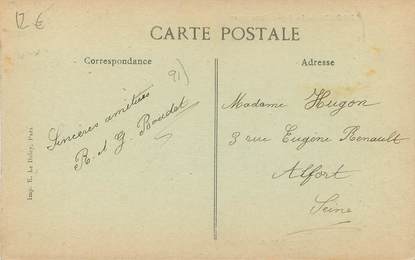 12 €
CARTE POSTALE
Correspondance
Adresse
91)
Sincères amitiés
R. et G. Boudet
Madame Hugon
3 rue Eugène Renault
Alfort
Seine
Imp. E. Le Deley, Paris